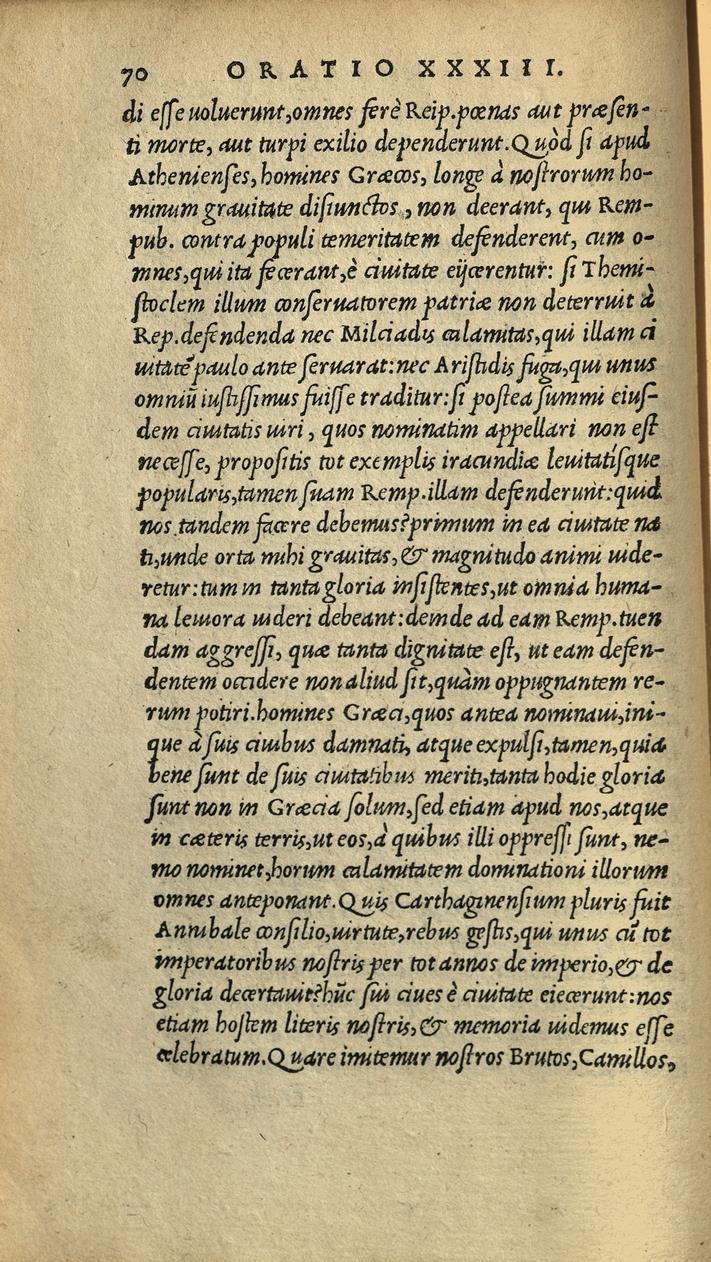 70 ORATIO XXXIII.
di esse uoluerunt,omnes ferè Reip.pœnas aut præsen-
ti morte, aut turpi exilio dependerunt.Quòd si apud
Athenienses, homines Græcos, longe à nostrorum ho-
minum grauitate disiunctos, non deerant, qui Rem-
pub. contra populi temeritatem defenderent, cum o-
mnes,qui ita fecerant,è ciuitate eijcerentur: si Themi-
stoclem illum conseruatorem patriæ non deterruit à
Rep.defendenda nec Milciadis calamitas,qui illam ci
uitatẽ paulo ante seruarat:nec Aristidis fuga,qui unus
omniũ iustissimus fuisse traditur:si postea summi eius-
dem ciuitatis uiri, quos nominatim appellari non est
necesse, propositis tot exemplis iracundiæ leuitatisque
popularis,tamen suam Remp.illam defenderunt:quid
nos tandem facere debemus?primum in ea ciuitate na
ti,unde orta mihi grauitas,& magnitudo animi uide-
retur:tum in tanta gloria insistentes,ut omnia huma-
na leuiora uideri debeant:deinde ad eam Remp.tuen
dam aggressi, quæ tanta dignitate est, ut eam defen-
dentem occidere non aliud sit,quàm oppugnantem re-
rum potiri.homines Græci,quos antea nominaui,ini-
que à suis ciuibus damnati, atque expulsi,tamen,quia
bene sunt de suis ciuitatibus meriti,tanta hodie gloria
sunt non in Græcia solum,sed etiam apud nos,atque
in cæteris terris,ut eos,à quibus illi oppressi sunt, ne-
mo nominet,horum calamitatem dominationi illorum
omnes anteponant.Quis Carthaginensium pluris fuit
Annibale consilio,uirtute,rebus gestis,qui unus cũ tot
imperatoribus nostris per tot annos de imperio,& de
gloria decertauit?hũc sui ciues è ciuitate eiecerunt:nos
etiam hostem literis nostris,& memoria uidemus esse
celebratum.Quare imitemur nostros Brutos,Camillos,